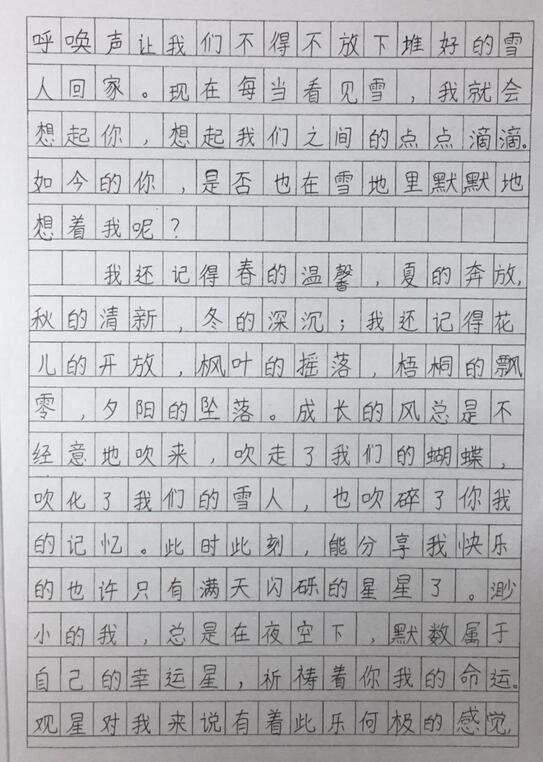 呼唤声让我们不得不放下堆好的雪
人回家。现在每当看见雪，我就会
想起你，想起我们之间的点点滴滴。
如今的你，是否也在雪地里默默地
想着我呢？
我还记得春的温馨，夏的奔放，
秋的清新，冬的深沉；我还记得花
儿的开放，枫叶的摇落，梧桐的飘
零，夕阳的坠落。成长的风总是不
经意地吹来，吹走了我们的蝴蝶，
吹化了我们的雪人，也吹碎了你我
的记忆。此时此刻，能分享我快乐
的也许只有满天闪砾的星星了。渺
小的我，总是在夜空下，默数属于
自己的幸运星，祈祷着你我的命运。
观星对我来说有着此乐何极的感觉，